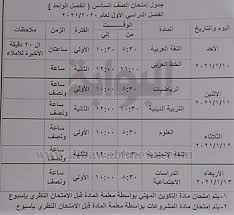 جدول امتحان الصف السادس ( الفصل الواحد )
الفصل الدراسي الأول لعام ٢٠٢١/٢٠٢٠
اليوم والتاريخ المادة الوقت الفترة الزمن ملاحظات
من إلى
الأحد ٢٠٢١/١/١٠ اللغة العربية ٨:٣٠ ١٠:٣٠ الأولى ساعتان ال ٢٠ دقيقة الأخيرة للاملاء
الخط العربي الثانية ساعة
الاثنين ٢٠٢١/١/١١ الرياضيات ٨:٣٠ ١٠:٠٠ الأولى ساعة ونصف
التربية الدينية الثانية ساعة
الثلاثاء ٢٠٢١/١/١٢ العلوم ٨:٣٠ ١٠:٠٠ الأولى ساعة ونصف
اللغة الإنجليزية الثانية ساعة ونصف
الأربعاء ٢٠٢١/١/١٣ الدراسات الاجتماعية ٨:٣٠ ١٠:٠٠ الأولى ساعة ونصف
١- يتم إمتحان مادة التكوين المهني بواسطة معلمة المادة قبل الامتحان النظري بإسبوع
٢- يتم امتحان مادة المشروعات بواسطة معلمة المادة قبل الامتحان النظري بإسبوع